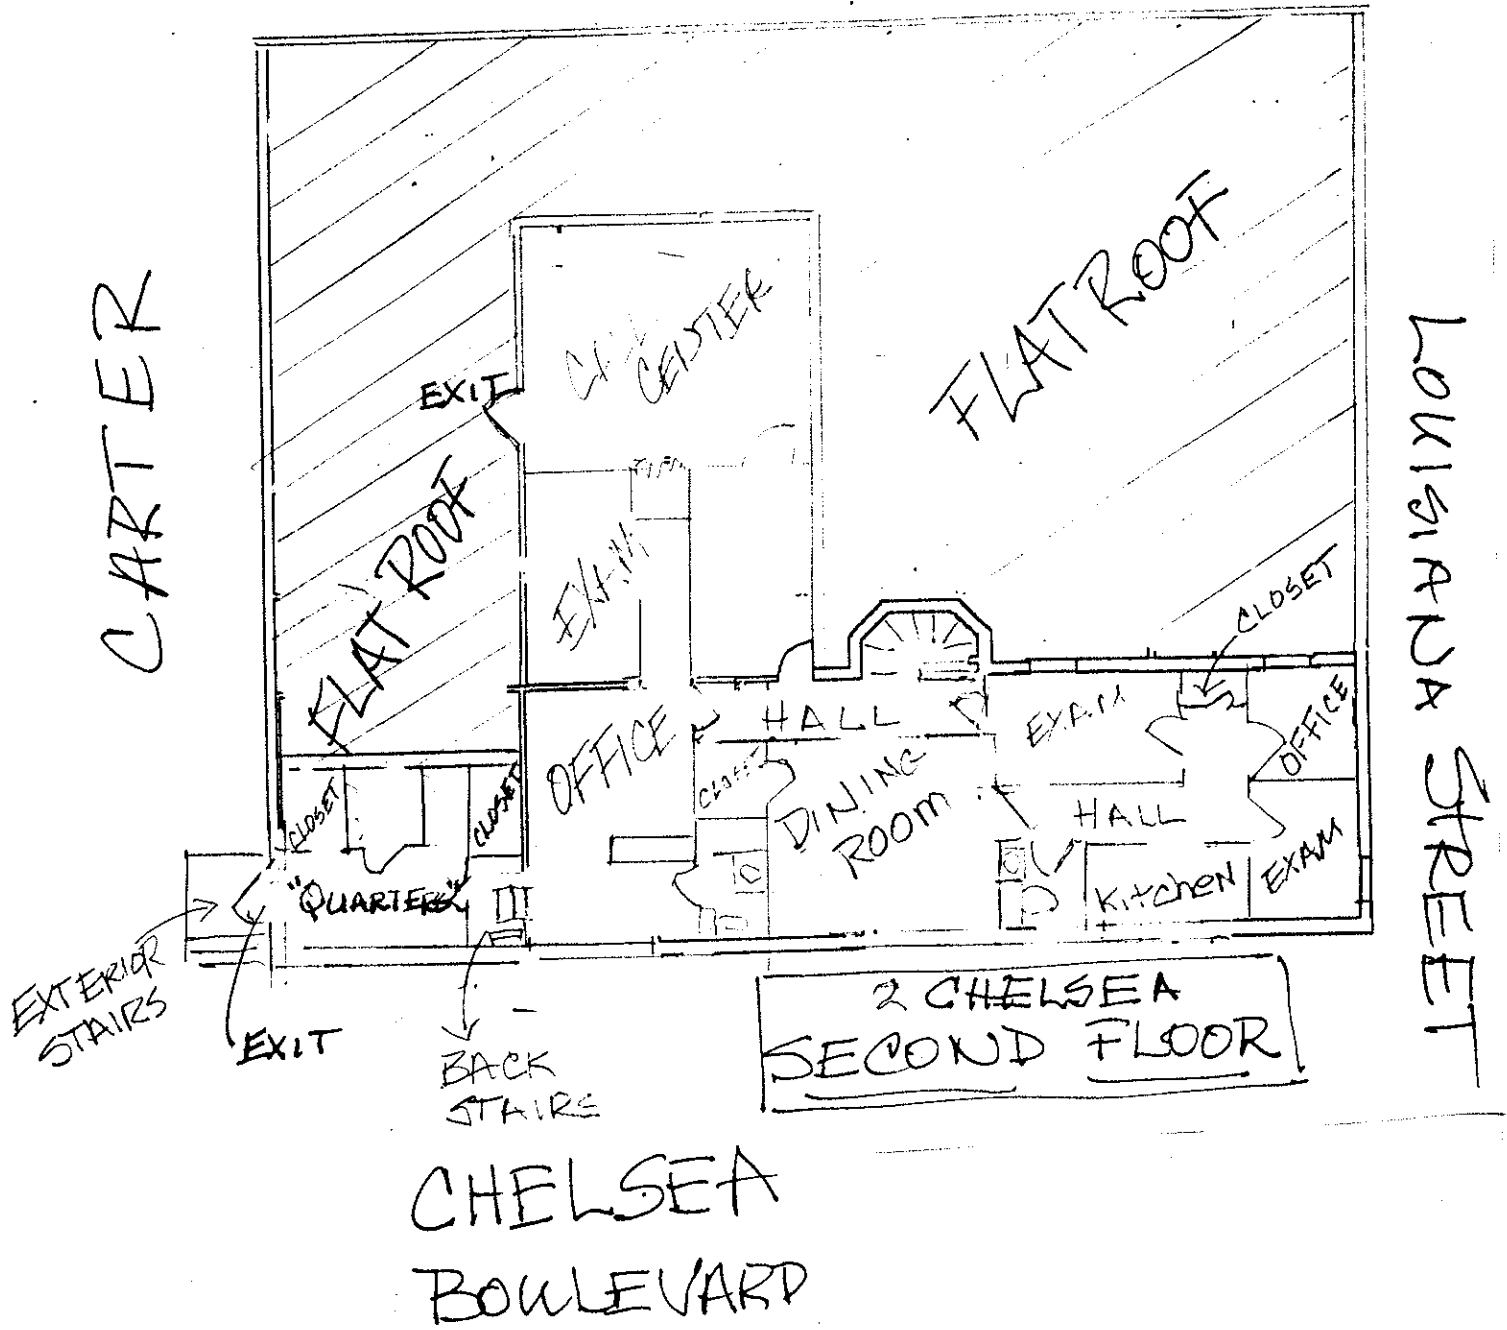 FLAT ROOF
CENTER
EXIT
CARTER
FLAT ROOF
EXAM
LOUISIANA STREET
CLOSET
OFFICE
HALL
EXAM
OFFICE
CLOSET
CLOSET
CLOSET
DINING
ROOM
HALL
"QUARTERS"
KitcheN
EXAM
EXTERIOR
STAIRS
EXIT
BACK
STAIRS
2 CHELSEA
SECOND FLOOR
CHELSEA
BOULEVARD